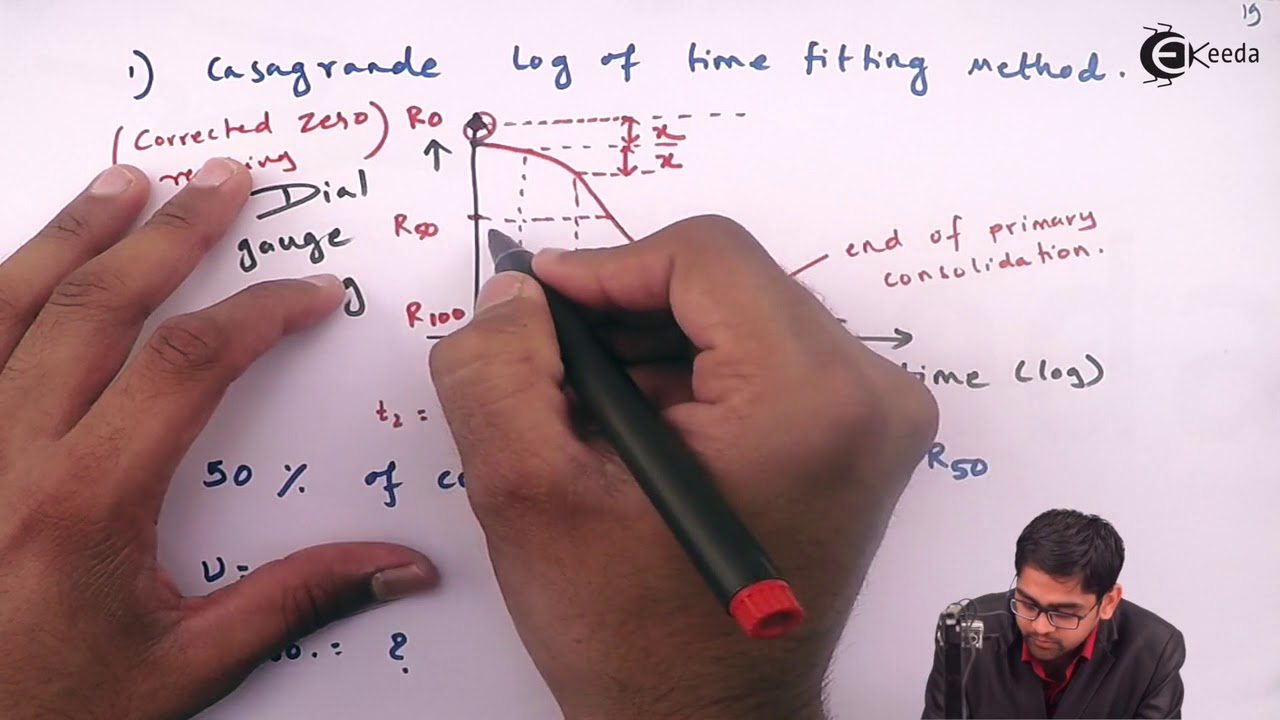 19
Keeda
1) Casagrande Log of time fitting method.
(Corrected zero) R0
x
x
Dial
gauge
R50
R100
end of primary
consolidation.
time (log)
t2 =
50 % of
R50
U =
= ?